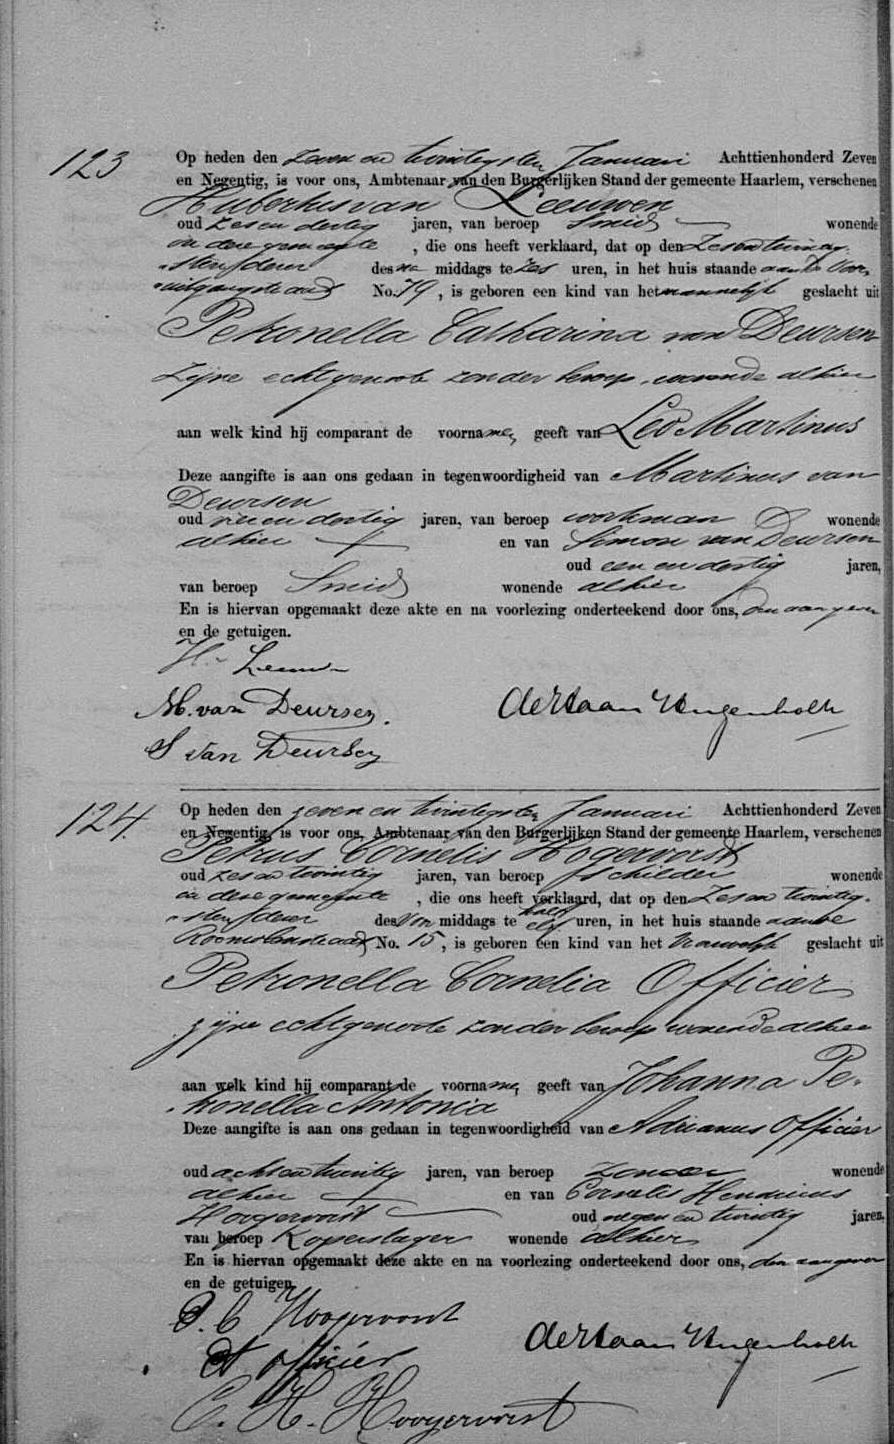 123
Op heden den zeven en twintigsten Januari Achttienhonderd Zeven
en Negentig, is voor ons, Ambtenaar van den Burgerlijken Stand der gemeente Haarlem, verschenen
Hubertus van Leeuwen
oud zes en dertig jaren, van beroep Smid wonende
in deze gemeente , die ons heeft verklaard, dat op den Zes en twintig-
sten dezer des na middags te zes uren, in het huis staande aan de
No. 79, is geboren een kind van het mannelijk geslacht uit
Petronella Catharina van Deursen
zijne echtgenoote zonder beroep, wonende alhier
aan welk kind hij comparant de voornamen geeft van Leo Martinus
Deze aangifte is aan ons gedaan in tegenwoordigheid van Martinus van
Deursen
oud vier en dertig jaren, van beroep workman wonende
alhier en van Simon van Deursen
oud een en dertig jaren,
van beroep Smid wonende alhier
En is hiervan opgemaakt deze akte en na voorlezing onderteekend door ons, den aangever
en de getuigen.
H. v Leeuwen
M. van Deursen.
de Haan Hugenholtz
S van Deursen
124.
Op heden den zeven en twintigsten Januari Achttienhonderd Zeven
en Negentig, is voor ons, Ambtenaar van den Burgerlijken Stand der gemeente Haarlem, verschenen
Petrus Cornelis Hogervorst
oud zes en twintig jaren, van beroep schilder wonende
in deze gemeente , die ons heeft verklaard, dat op den Zes en twintig-
sten dezer des Voor middags te half elf uren, in het huis staande aan de
No. 15, is geboren een kind van het Vrouwelijk geslacht uit
Petronella Cornelia Officier
zijne echtgenoote zonder beroep wonende alhier
aan welk kind hij comparant de voornamen geeft van Johanna Pe-
tronella Antonia
Deze aangifte is aan ons gedaan in tegenwoordigheid van Adrianus Officier
oud acht en twintig jaren, van beroep zonder wonende
alhier en van Cornelis Hendricus
Hoogervorst oud negen en twintig jaren,
van beroep Koperslager wonende alhier
En is hiervan opgemaakt deze akte en na voorlezing onderteekend door ons, den aangever
en de getuigen.
P. C Hoogervorst
de Haan Hugenholtz
A Officier
C. H. Hoogervorst